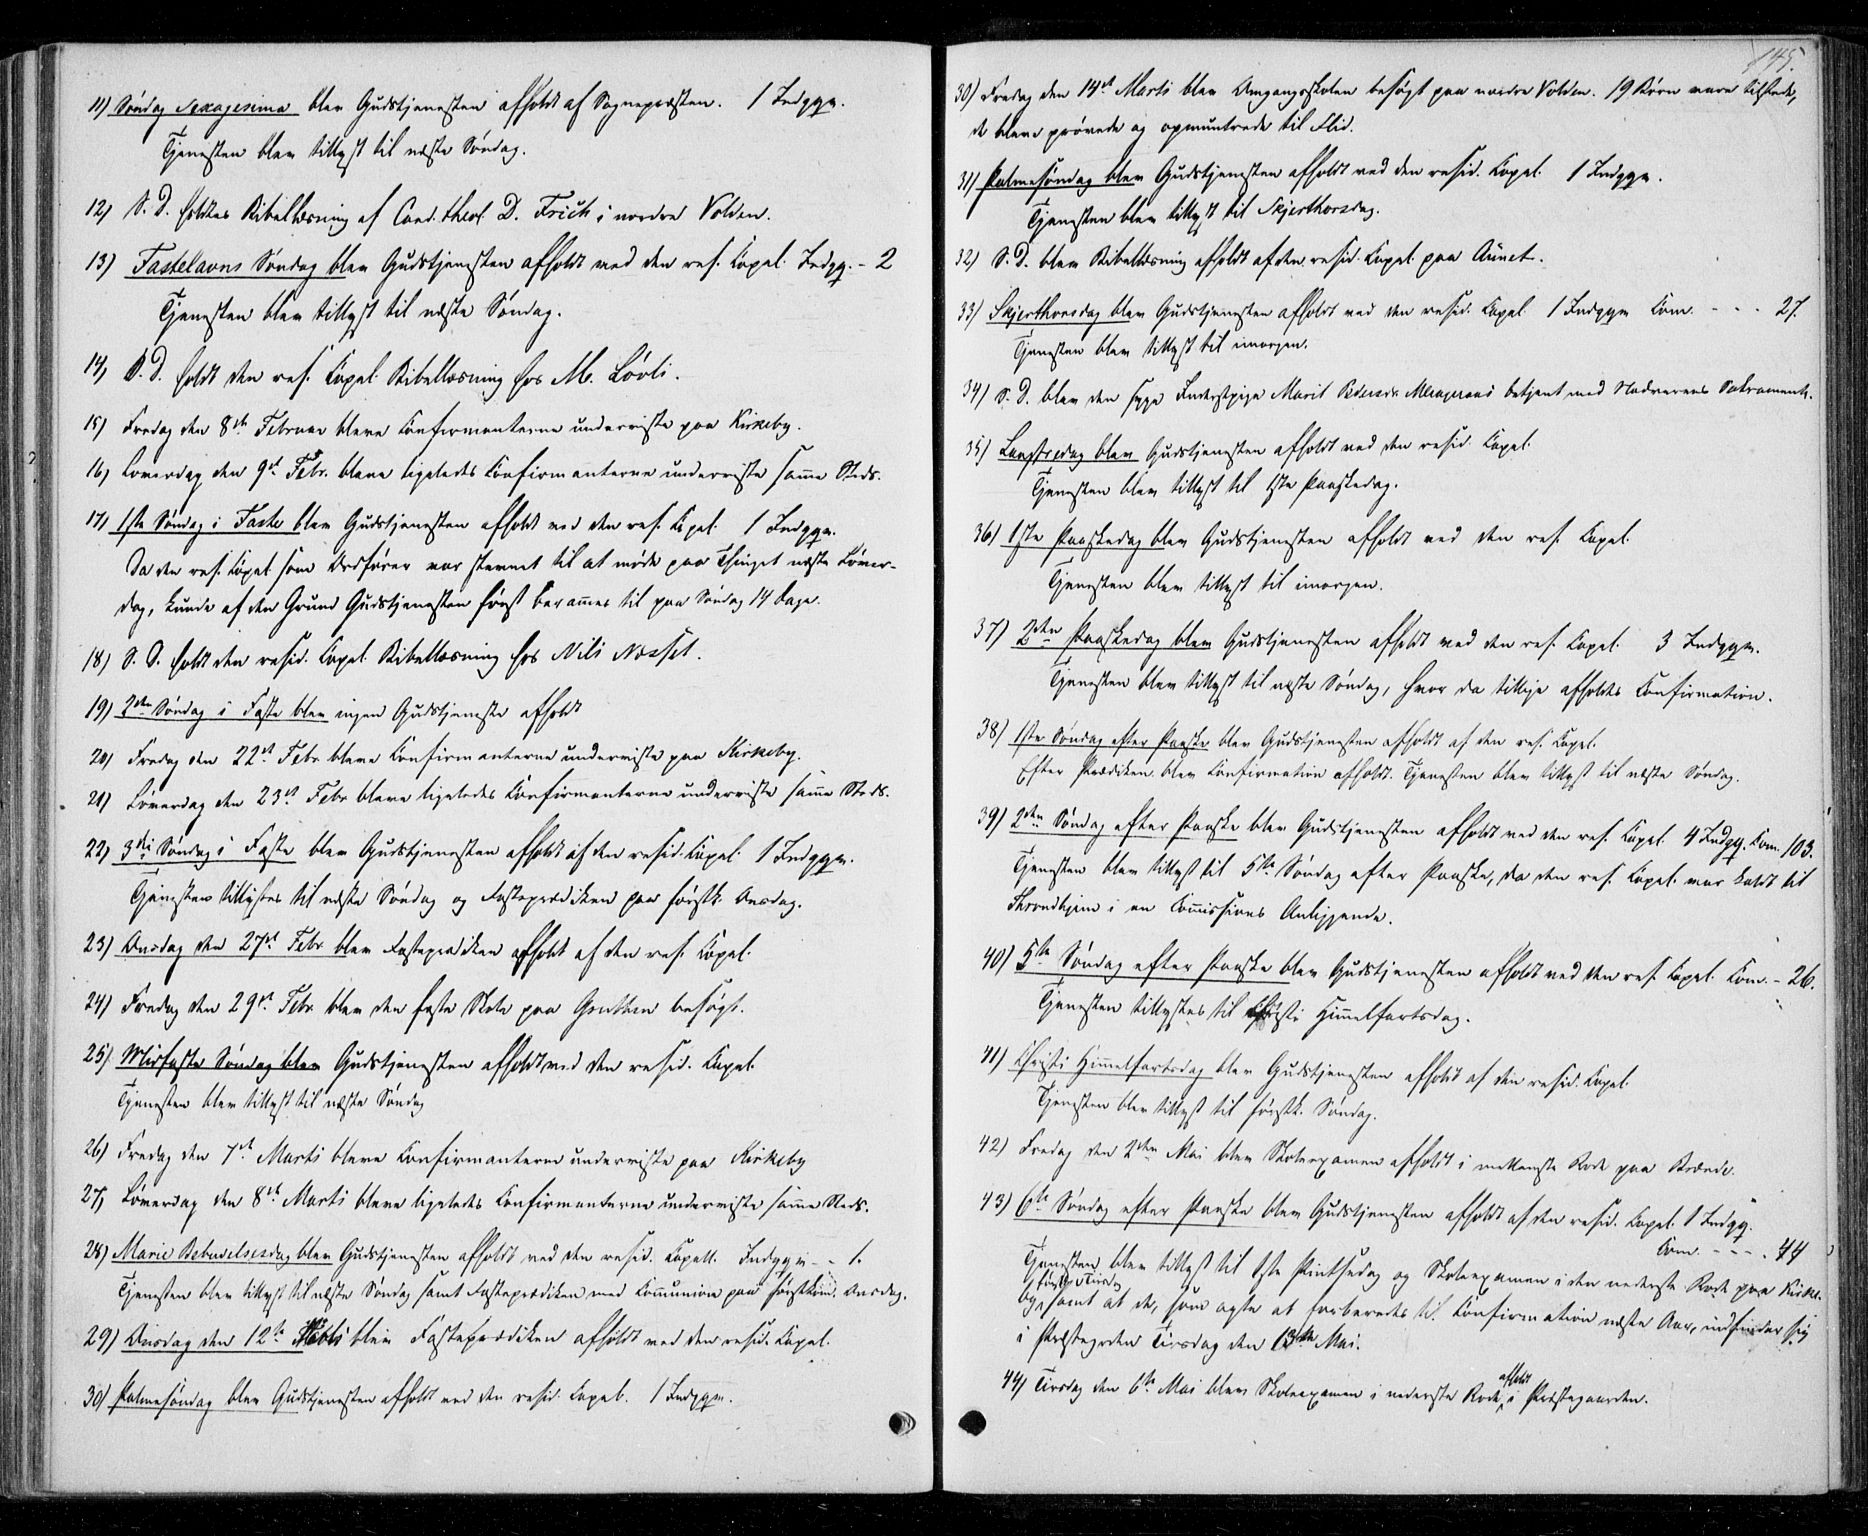 11) Søndag Sexagesima blev Gudstjenesten afholdt af Sognepræsten. 1 Indggk.
Tjenesten blev tillyst til næste Søndag.
12) S. D. holdtes Bibellæsning af Cand. theol. D. Frich i nordre Volden.
13) Fastelavns Søndag blev Gudstjenesten afholdt ved den res. Capel. Indgg. - 2
Tjenesten blev tillyst til næste Søndag.
14) S. D. holdt den res. Capel. Bibellæsning hos M. Løvli.
15) Fredag den 8de Februar bleve Confirmanterne underviste paa Kirkeby.
16) Løverdag den 9de Febr. bleve ligeledes Confirmanterne underviste samme Steds.
17) 1ste Søndag i Faste blev Gudstjenesten afholdt ved den res. Capel. 1 Indggk.
Da den res. Capel. som Ordfører var stevnet til at møde paa Thinget næste Løver-
dag, kunde af den Grund Gudstjenesten først berammes til paa Søndag 14 Dage.
18) S. D. holdt den resid. Capel. Bibellæsning hos Nils Næsset.
19) 2den Søndag i Faste blev ingen Gudstjeneste afholdt
20) Fredag den 22de Febr bleve Confirmanterne underviste paa Kirkeby.
21) Løverdag den 23de Febr bleve ligeledes Confirmanterne underviste samme Steds.
22) 3die Søndag i Faste blev Gudstjenesten afholdt af den resid. Capel. 1 Indggk.
Tjenesten tillystes til næste Søndag og Fasteprædiken paa førstk. Onsdag.
23) Onsdag den 27de Febr blev Fasteprædiken afholdt af den res. Capel.
24) Fredag den 29de Febr blev den faste Skole paa besøgt.
25) Midfaste Søndag blev Gudstjenesten afholdt ved den resid. Capel.
Tjenesten blev tillyst til næste Søndag
26) Fredag den 7de Marts bleve Confirmanterne underviste paa Kirkeby
27) Løverdag den 8de Marts bleve ligeledes Confirmanterne underviste samme Steds.
28) Marie Bebudelsesdag blev Gudstjenesten afholdt ved den resid. Capell. Indggk - - 1.
Tjenesten blev tillyst til næste Søndag samt Fasteprædiken med Communion paa førstkom. Onsdag.
29) Onsdag den 12te Marts blev Fasteprædiken afholdt ved den resid. Capel.
30) Palmesøndag blev Gudstjenesten afholdt ved den resid. Capel. 1 Indggk.
145.
30) Fredag den 14de Marts blev Omgangsskolen besøgt paa nordre Volden. 19 Børn vare tilstede,
de bleve prøvede og opmuntrede til Flid.
31) Palmesøndag blev Gudstjenesten afholdt ved den resid. Capel. 1 Indggk.
Tjenesten blev tillyst til Skjerthorsdag.
32) S. D. blev Bibellæsning afholdt af den resid. Capel. paa Aunet.
33) Skjerthorsdag blev Gudstjenesten afholdt ved den resid. Capel. 1 Indggk Com. - - - 27.
Tjenesten blev tillyst til imorgen.
34) S. D. blev den syge Inderstpige Marit Pedersdr. betjent med Nadverens Sakramente.
35) Langfredag blev Gudstjenesten afholdt ved den resid. Capel.
Tjenesten blev tillyst til 1ste Paaskedag.
36) 1ste Paaskedag blev Gudstjenesten afholdt ved den res. Capel.
Tjenesten blev tillyst til imorgen.
37) 2den Paaskedag blev Gudstjenesten afholdt ved den res. Capel. 3 Indggk.
Tjenesten blev tillyst til næste Søndag, hvor da tillige afholdes Confirmation.
38) 1ste Søndag efter Paaske blev Gudstjenesten afholdt af den res. Capel.
Efter Prædiken blev Confirmation afholdt. Tjenesten blev tillyst til næste Søndag.
39) 2den Søndag efter Paaske blev Gudstjenesten afholdt ved den res. Capel. 4 Indgg. Com. 103.
Tjenesten blev tillyst til 5te Søndag efter Paaske, da den res. Capel. var kaldt til
Throndhjem i en Commissions Anliggende.
40) 5te Søndag efter Paaske blev Gudstjenesten afholdt ved den res. Capel. Com. - 26.
Tjenesten tillystes til Christi Himmelfartsdag.
41) Christi Himmelfartsdag blev Gudstjenesten afholdt af den resid. Capel.
Tjenesten blev tillyst til førstk. Søndag.
42) Fredag den 2den Mai blev Skoleexamen afholdt i mellemste Rode paa
43) 6te Søndag efter Paaske blev Gudstjenesten afholdt af den resid. Capel. 1 Indgg.
Com. - - - - 44
Tjenesten blev tillyst til 1ste Pintsedag og Skoleexamen i den nederste Rode paa Kirke-
førstk. Tirsdag
by, samt at de, som agte at forberedes til Confirmation næste Aar, indfinder sig
i Præstegrden Tirsdag den 13de Mai.
afholdt
44) Tirsdag den 6te Mai blev Skoleexamen i nederste Rode i Præstegaarden.